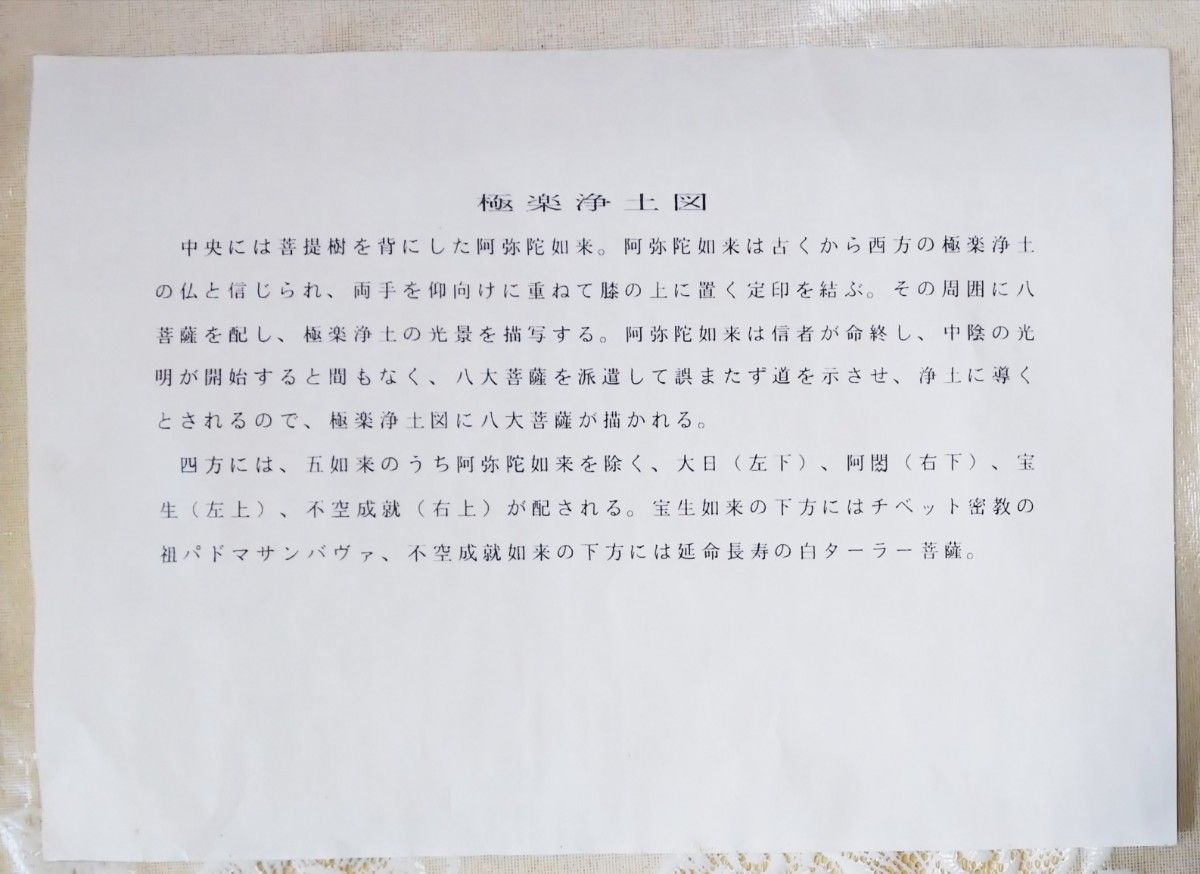 極楽浄土図
中央には菩提樹を背にした阿弥陀如来。阿弥陀如来は古くから西方の極楽浄土
の仏と信じられ、両手を仰向けに重ねて膝の上に置く定印を結ぶ。その周囲に八
菩薩を配し、極楽浄土の光景を描写する。阿弥陀如来は信者が命終し、中陰の光
明が開始すると間もなく、八大菩薩を派遣して誤またず道を示させ、浄土に導く
とされるので、極楽浄土図に八大菩薩が描かれる。
四方には、五如来のうち阿弥陀如来を除く、大日（左下）、阿閦（右下）、宝
生（左上）、不空成就（右上）が配される。宝生如来の下方にはチベット密教の
祖パドマサンバヴァ、不空成就如来の下方には延命長寿の白ターラー菩薩。